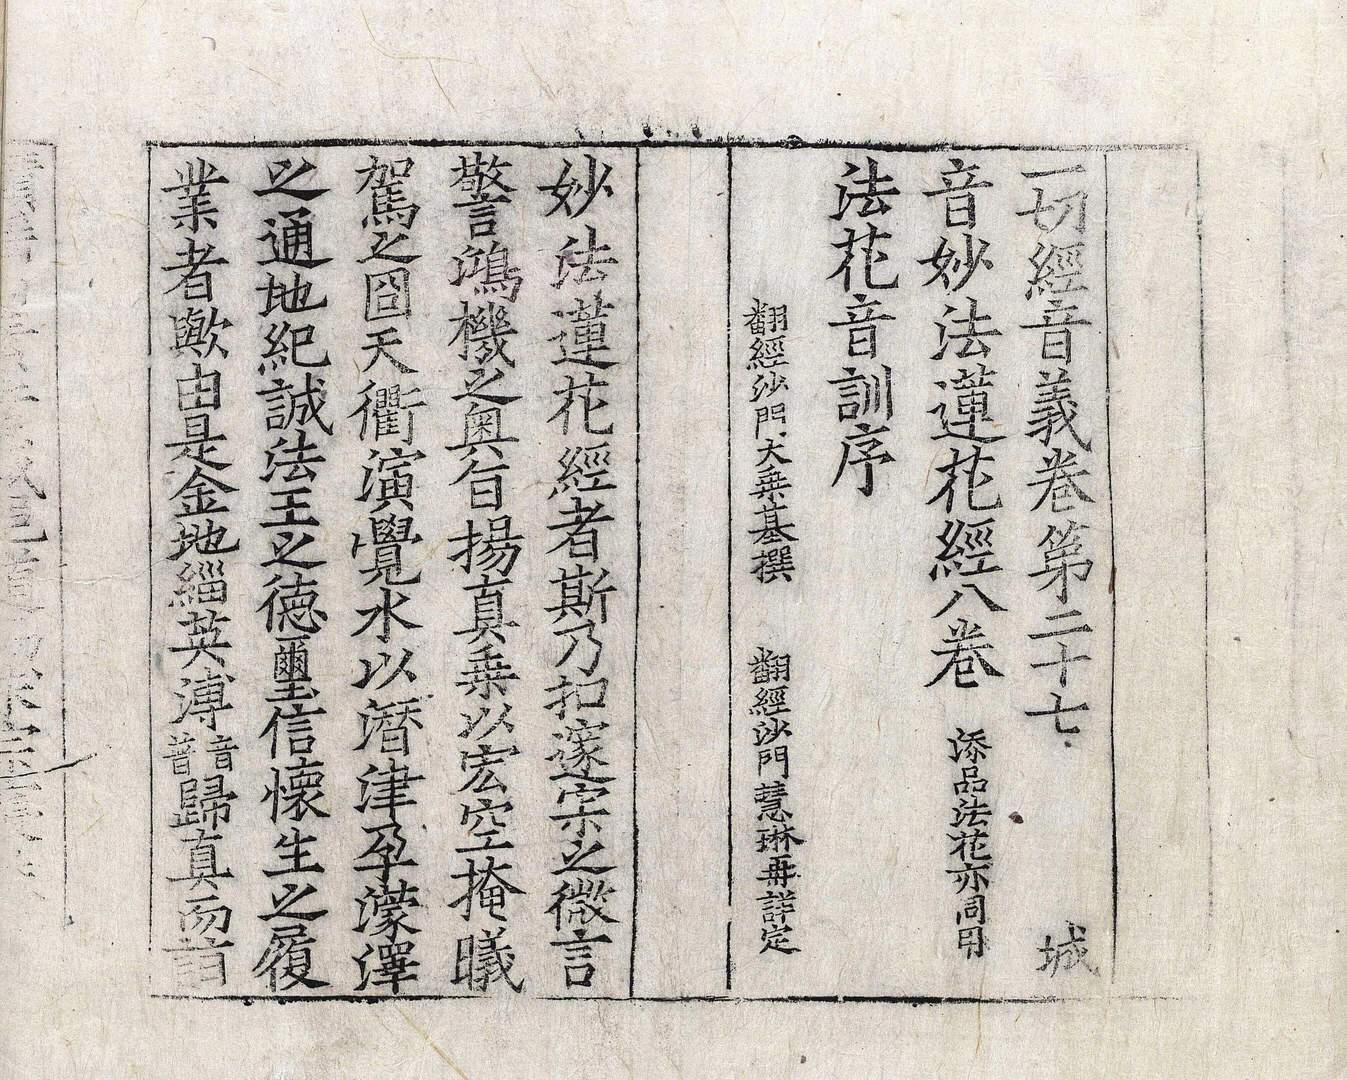 一切經音義卷第二十七 城
音妙法蓮花經八卷 添品法花亦同用
法花音訓序
翻經沙門大乗基撰 翻經沙門慧琳再詳定
妙法蓮花經者斯乃扣邃宗之微言
警鴻機之奧旨揚真乗以宏空掩曦
駕之囧天衢演覺水以潛津孕濛澤
之通地紀誠法王之德璽信懷生之履
業者歟由是金地緇英溥音普歸真而